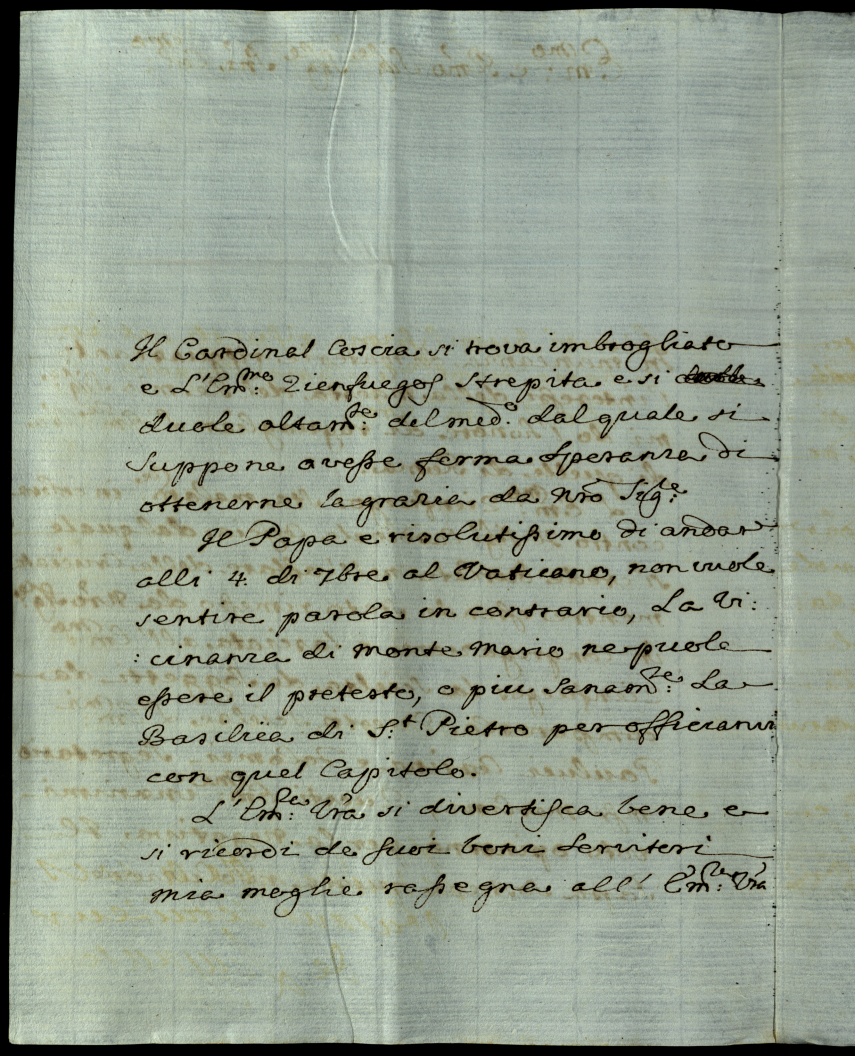 Il Cardinal Coscia si trova imbrogliato
e L'Em.mo Zienfuegos strepita e si
duole altam.te del med.o dal quale si
suppone avesse ferma speranza di
ottenerne la grazia da Nrõ Sig.re
Il Papa e risolutissimo di andar
alli 4. di 7bre al Vaticano, non vuole
sentire parola in contrario, La Vi:
:cinanza di monte mario ne puole
essere il pretesto, o piu sanam.te La
Basilica di S.t Pietro per officiarvi
con quel Capitolo.
L'Em.za Vrã si divertisca bene e
si ricordi de suoi boni servitori
mia moglie rassegna all' Em.za Vrã